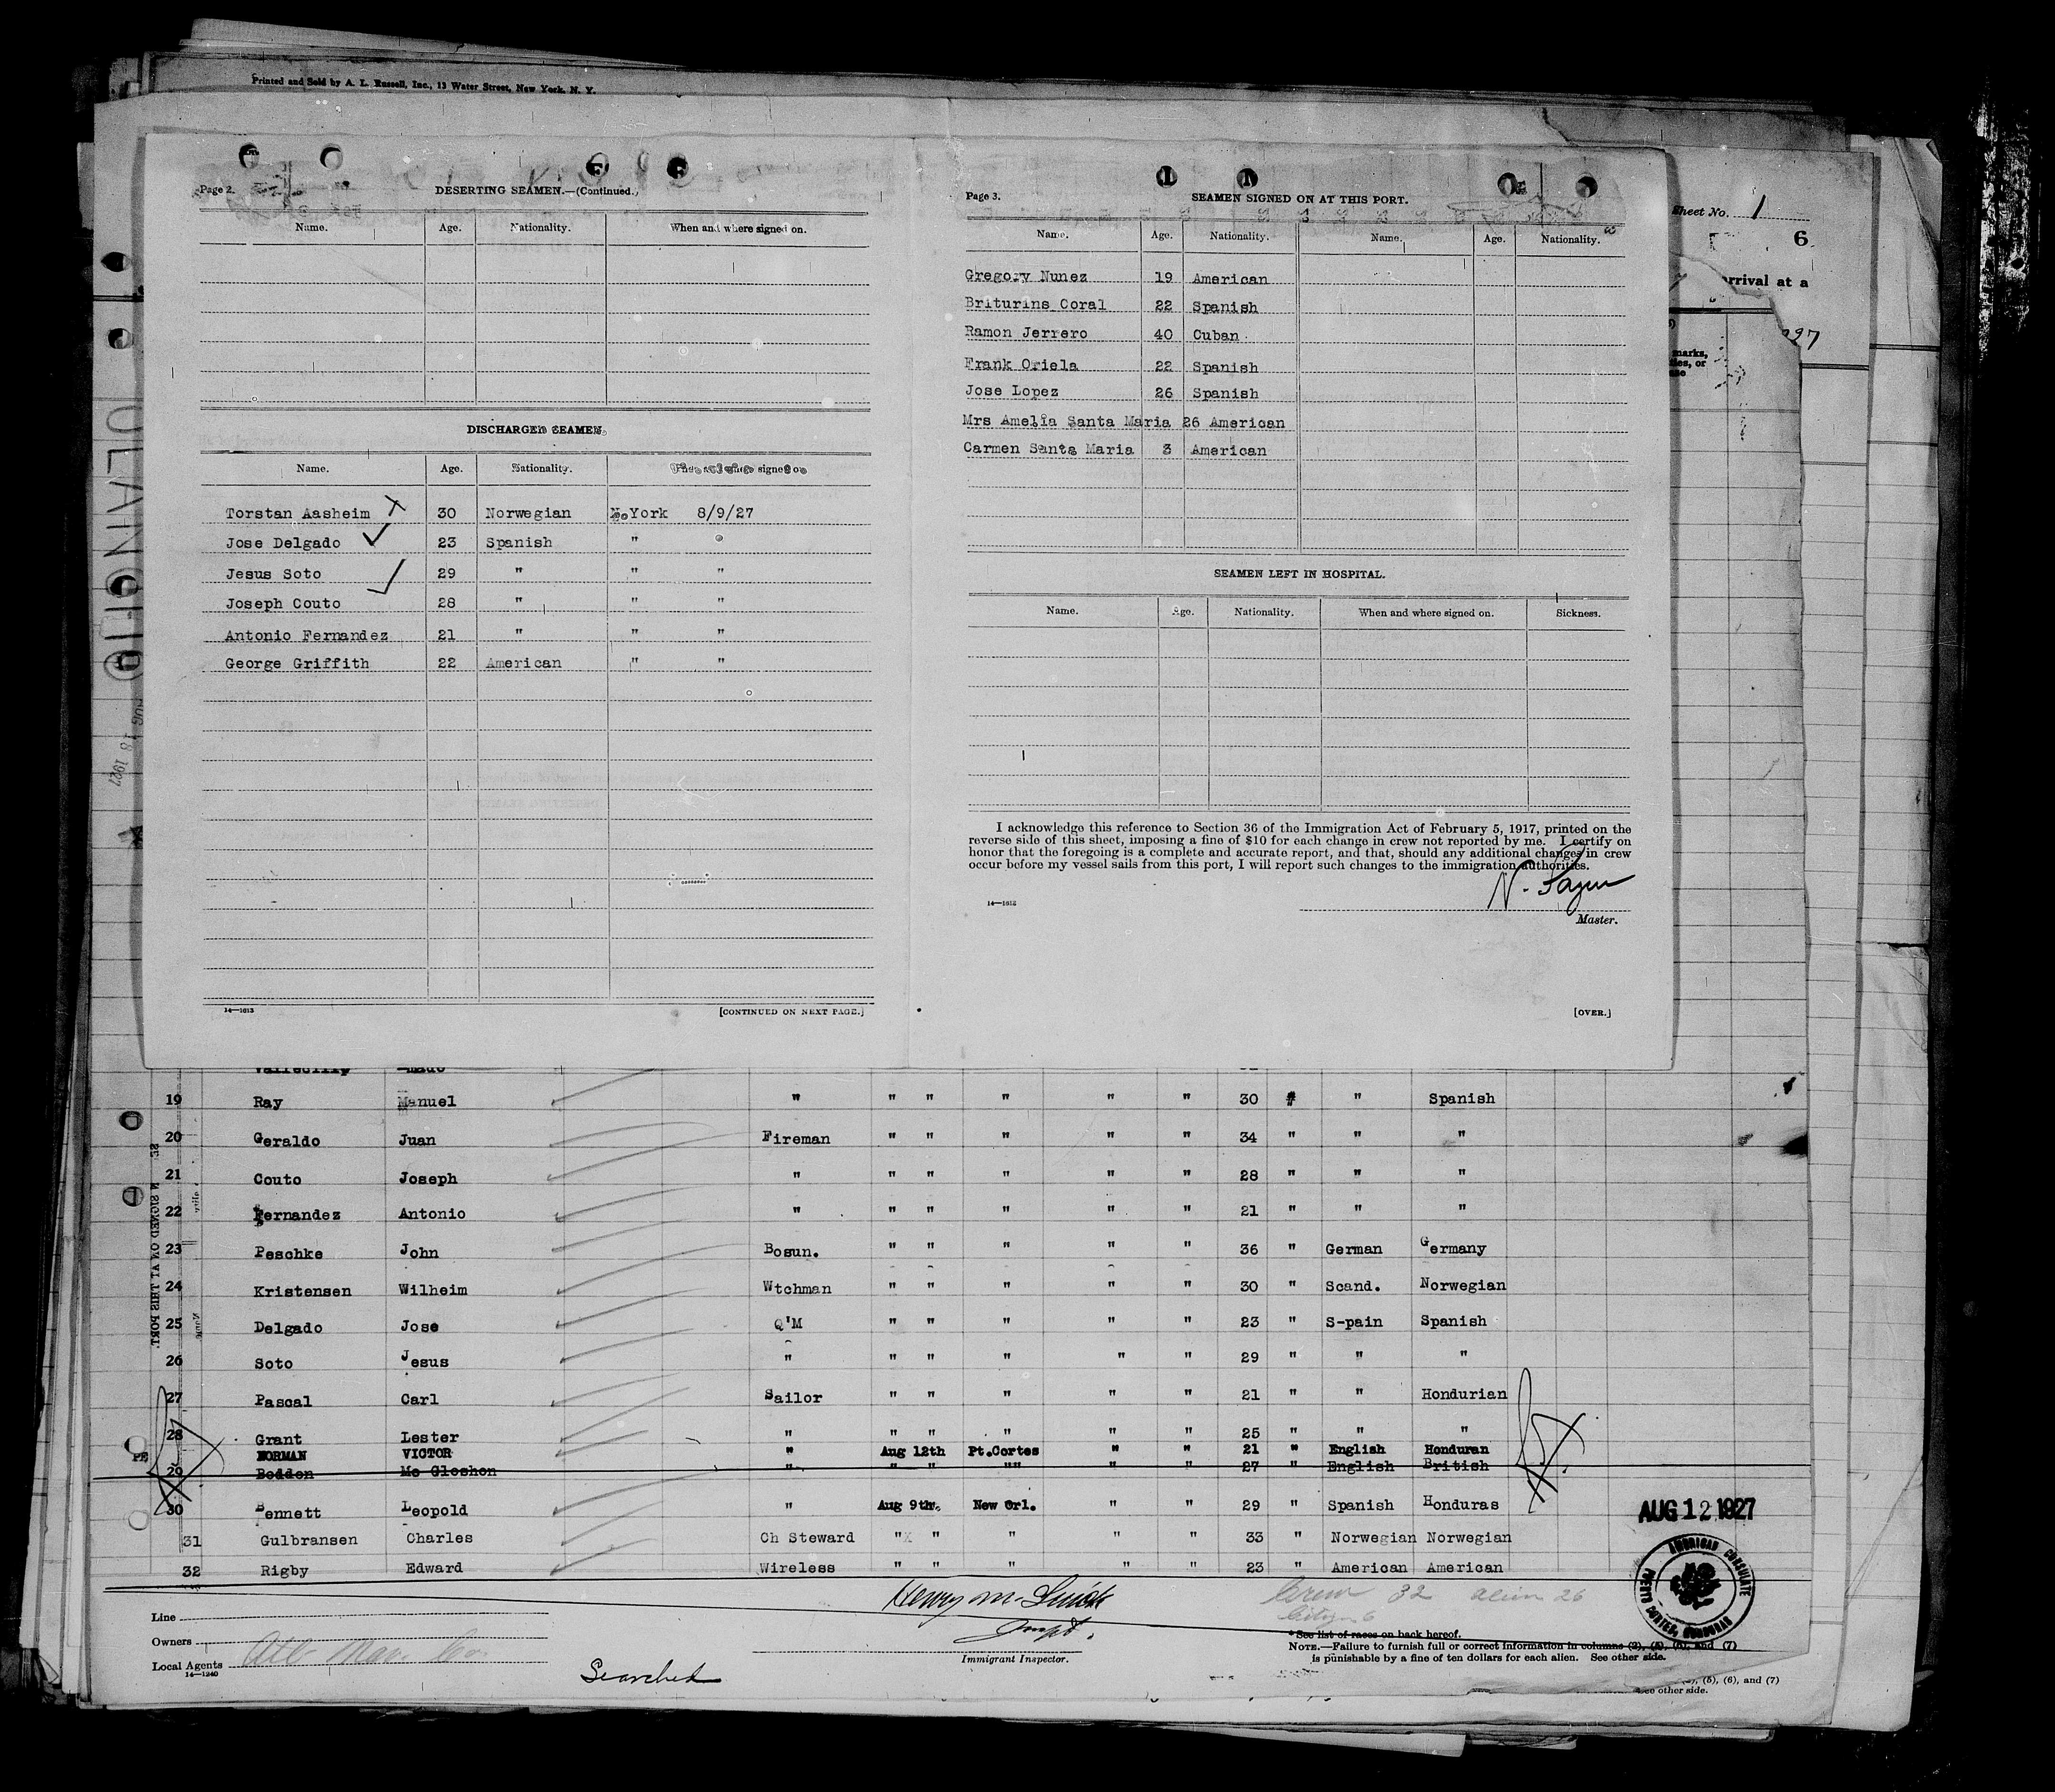 Printed and Sold by A. L. Russell, Inc., 13 Water Street, New York, N. Y.
Page 2.
DESERTING SEAMEN.—(Continued.)
Name. Age. Nationality. When and where signed on.
DISCHARGED SEAMEN.
Name. Age. Nationality. When and where signed on
Torstan Aasheim 30 Norwegian N.York 8/9/27
Jose Delgado 23 Spanish " "
Jesus Soto 29 " " "
Joseph Couto 28 " " "
Antonio Fernandez 21 " " "
George Griffith 22 American " "
14—1613
[CONTINUED ON NEXT PAGE.]
Page 3.
SEAMEN SIGNED ON AT THIS PORT.
Name. Age. Nationality. Name. Age. Nationality.
Gregory Nunez 19 American
Briturins Coral 22 Spanish
Ramon Jerrero 40 Cuban
Frank Oriela 22 Spanish
Jose Lopez 26 Spanish
Mrs Amelia Santa Maria 26 American
Carmen Santa Maria 3 American
SEAMEN LEFT IN HOSPITAL.
Name. Age. Nationality. When and where signed on. Sickness.
I acknowledge this reference to Section 36 of the Immigration Act of February 5, 1917, printed on the
reverse side of this sheet, imposing a fine of $10 for each change in crew not reported by me. I certify on
honor that the foregoing is a complete and accurate report, and that, should any additional changes in crew
occur before my vessel sails from this port, I will report such changes to the immigration authorities.
14—1613
Master.
[OVER.]
Sheet No. 1
6
arrival at a
marks,
AUG 18 1927
19 Ray Manuel " " " " " " 30 # " Spanish
20 Geraldo Juan Fireman " " " " " 34 " " "
21 Couto Joseph " " " " " " 28 " " "
22 Fernandez Antonio " " " " " " 21 " " "
23 Peschke John Bosun. " " " " " 36 " German Germany
24 Kristensen Wilheim Wtchman " " " " " 30 " Scand. Norwegian
25 Delgado Jose Q'M " " " " " 23 " S-pain Spanish
26 Soto Jesus " " " " " " 29 " " "
27 Pascal Carl Sailor " " " " " 21 " " Hondurian
28 Grant Lester " " " " " " 25 " " "
NORMAN VICTOR " Aug 12th Pt.Cortes " " 21 " English Honduran
29 Bodden Mc Gloshon " " " "" 27 " English British
30 Bennett Leopold " Aug 9th. New Orl. " " 29 " Spanish Honduras
31 Gulbransen Charles Ch Steward " " " " " 33 " Norwegian Norwegian
32 Rigby Edward Wireless " " " " " 23 " American American
AUG 12 1927
AMERICAN CONSULATE
PUERTO CORTES, HONDURAS
Crew 32 alien 26
Line
Owners
Local Agents
14—1240
Searched
Immigrant Inspector.
* See list of races on back hereof.
NOTE.—Failure to furnish full or correct information in columns (3), (5), (6), and (7)
is punishable by a fine of ten dollars for each alien. See other side.
(5), (6), and (7)
see other side.